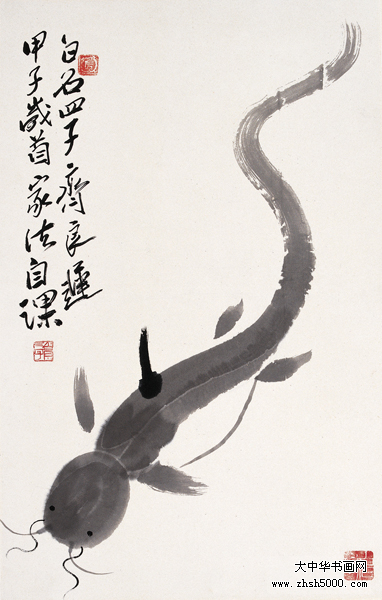 白石四子齊良遲
甲子歲首家法自課
大中华书画网
www.zhsh5000.com